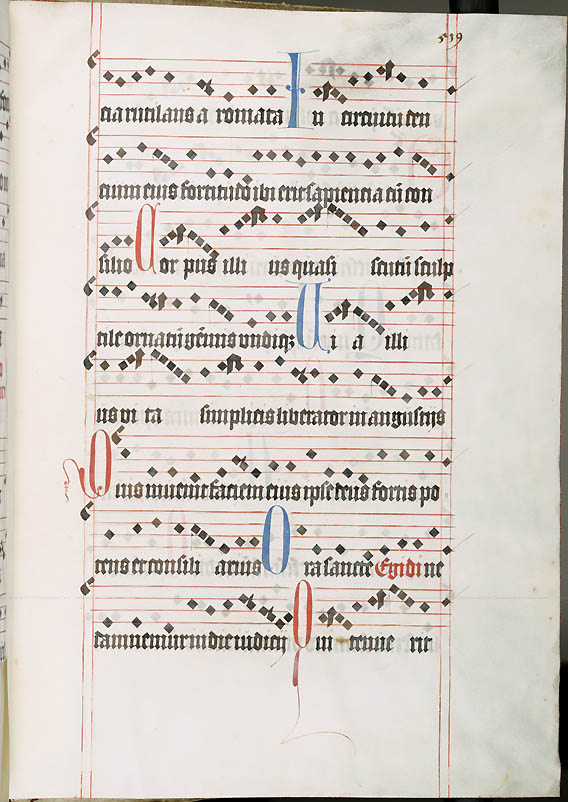 539
cia rutilans a romata In circuitu den
cium eius fortitudo ibi erit sapiencia cū con
silio Cor pus illi us quasi scutū sculp
tile ornatū gēmis vndiqz Ui a illi
us vi ta simplicis liberator in angustijs
Quis inuenit faciem eius ipse deus fortis po
tens et consili arius Ora sancte Egidi ne
damnemur in die iudicij Qui tenue rit